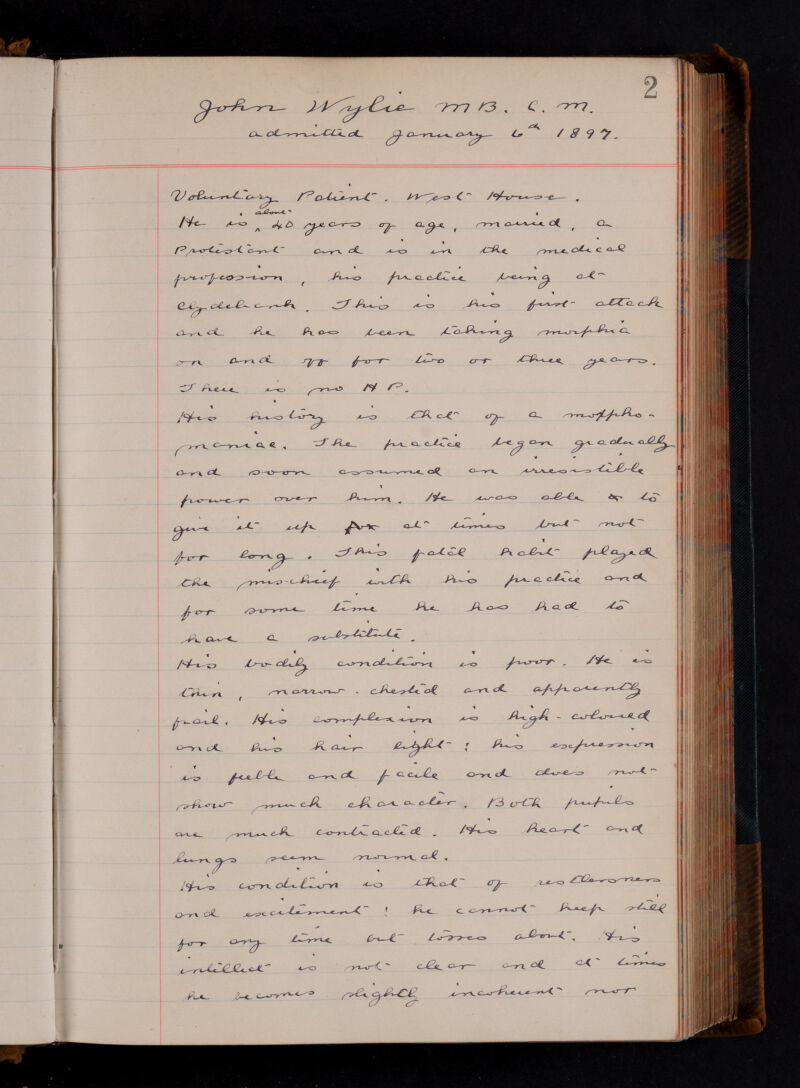 2
John Wylie MB. C. M.
admitted January 6th 1897.
Voluntary Patient. West House.
about
He is ^ 40 years of age, married, a
Protestant and is in the medical
profession, his practice being at
Clydebank. This is his first attack
and he has been taking morphia
on and off for two or three years.
There is no H P.
His history is that of a morpho-
maniac. The practice began gradually
and soon assumed an irresistible
power over him. He was able to
give it up for at times but not
for long. This fatal habit played
the mischief with his practice and
for some time he has had to
have a substitute.
His bodily condition is poor. He is
thin, narrow-chested and apparently
frail. His complexion is high-coloured
and his hair light; his expression
is feeble and facile and does not
show much character. Both pupils
are much contracted. His heart and
lungs seem normal.
His condition is that of restlessness
and excitement; he cannot keep still
for any time but tosses about. His
intellect is not clear and at times
he becomes slightly incoherent nor